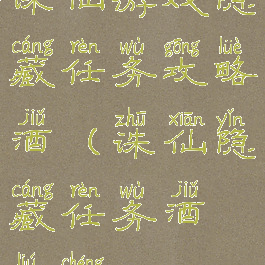 诛仙游戏隐
cáng rèn wù gōng lüè
藏任务攻略
jiǔ zhū xiān yǐn
酒（诛仙隐
cáng rèn wù jiǔ
藏任务酒
liú chéng